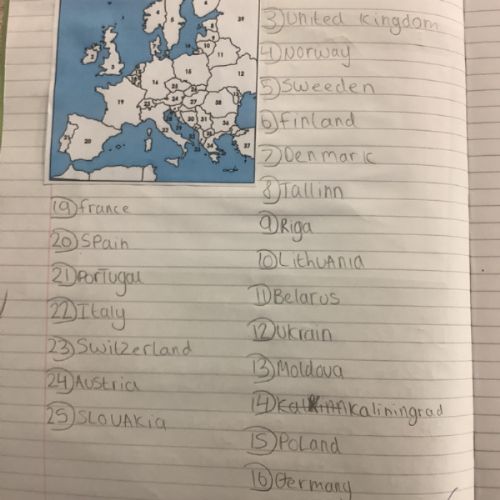 3) United Kingdom
4) Norway
5) Sweeden
6) Finland
7) Denmark
8) Tallinn
9) Riga
10) Lithuania
11) Belarus
12) Ukrain
13) Moldova
14) Kaliningrad
15) Poland
16) Germany
19) france
20) Spain
21) Portugal
22) Italy
23) Switzerland
24) Austria
25) Slovakia